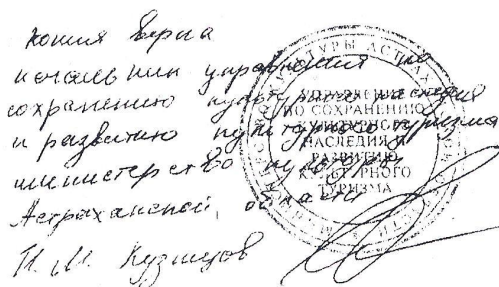 копия верна
начальник управления по
сохранению культурного наследия
и развитию культурного туризма
министерство культуры
Астраханской области
И. М. Кузнецов
УПРАВЛЕНИЕ
ПО СОХРАНЕНИЮ
КУЛЬТУРНОГО
НАСЛЕДИЯ И
РАЗВИТИЮ
КУЛЬТУРНОГО
ТУРИЗМА